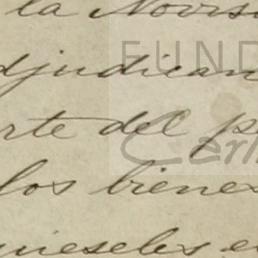 la Novis
djudican
rte del p
los bienes
nieseles e
FUND
Cerl